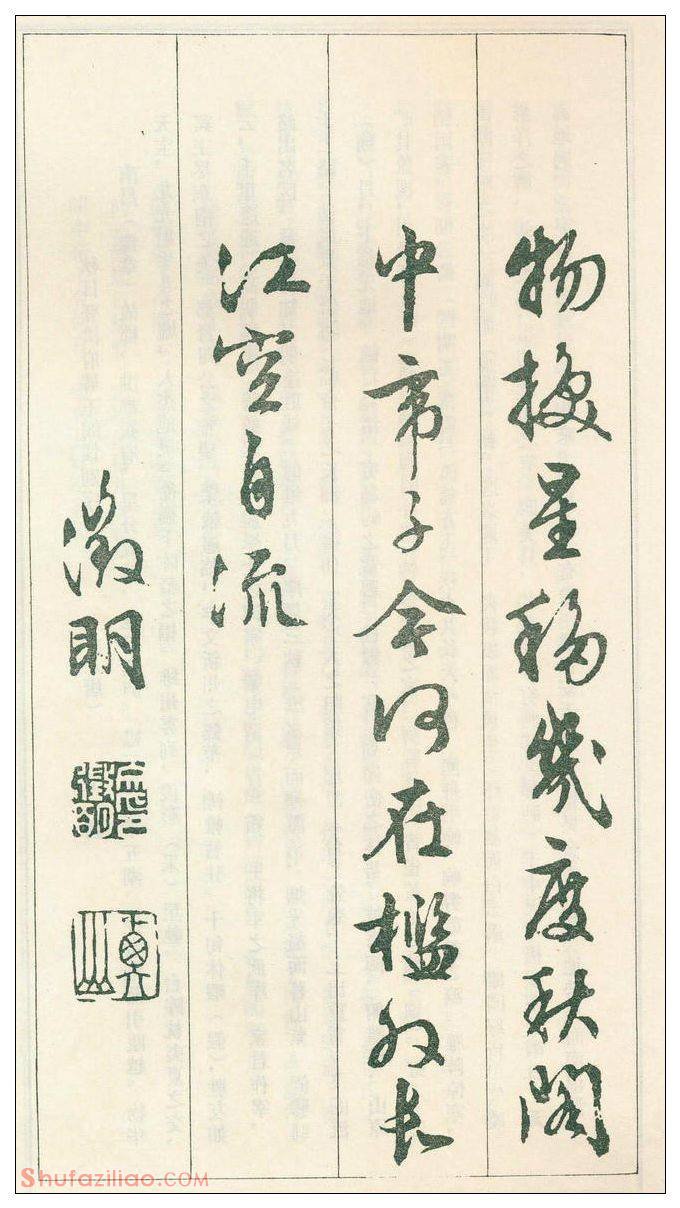 物換星移幾度秋閣
中帝子今何在檻外長
江空自流
徵明
Shufaziliao.COM